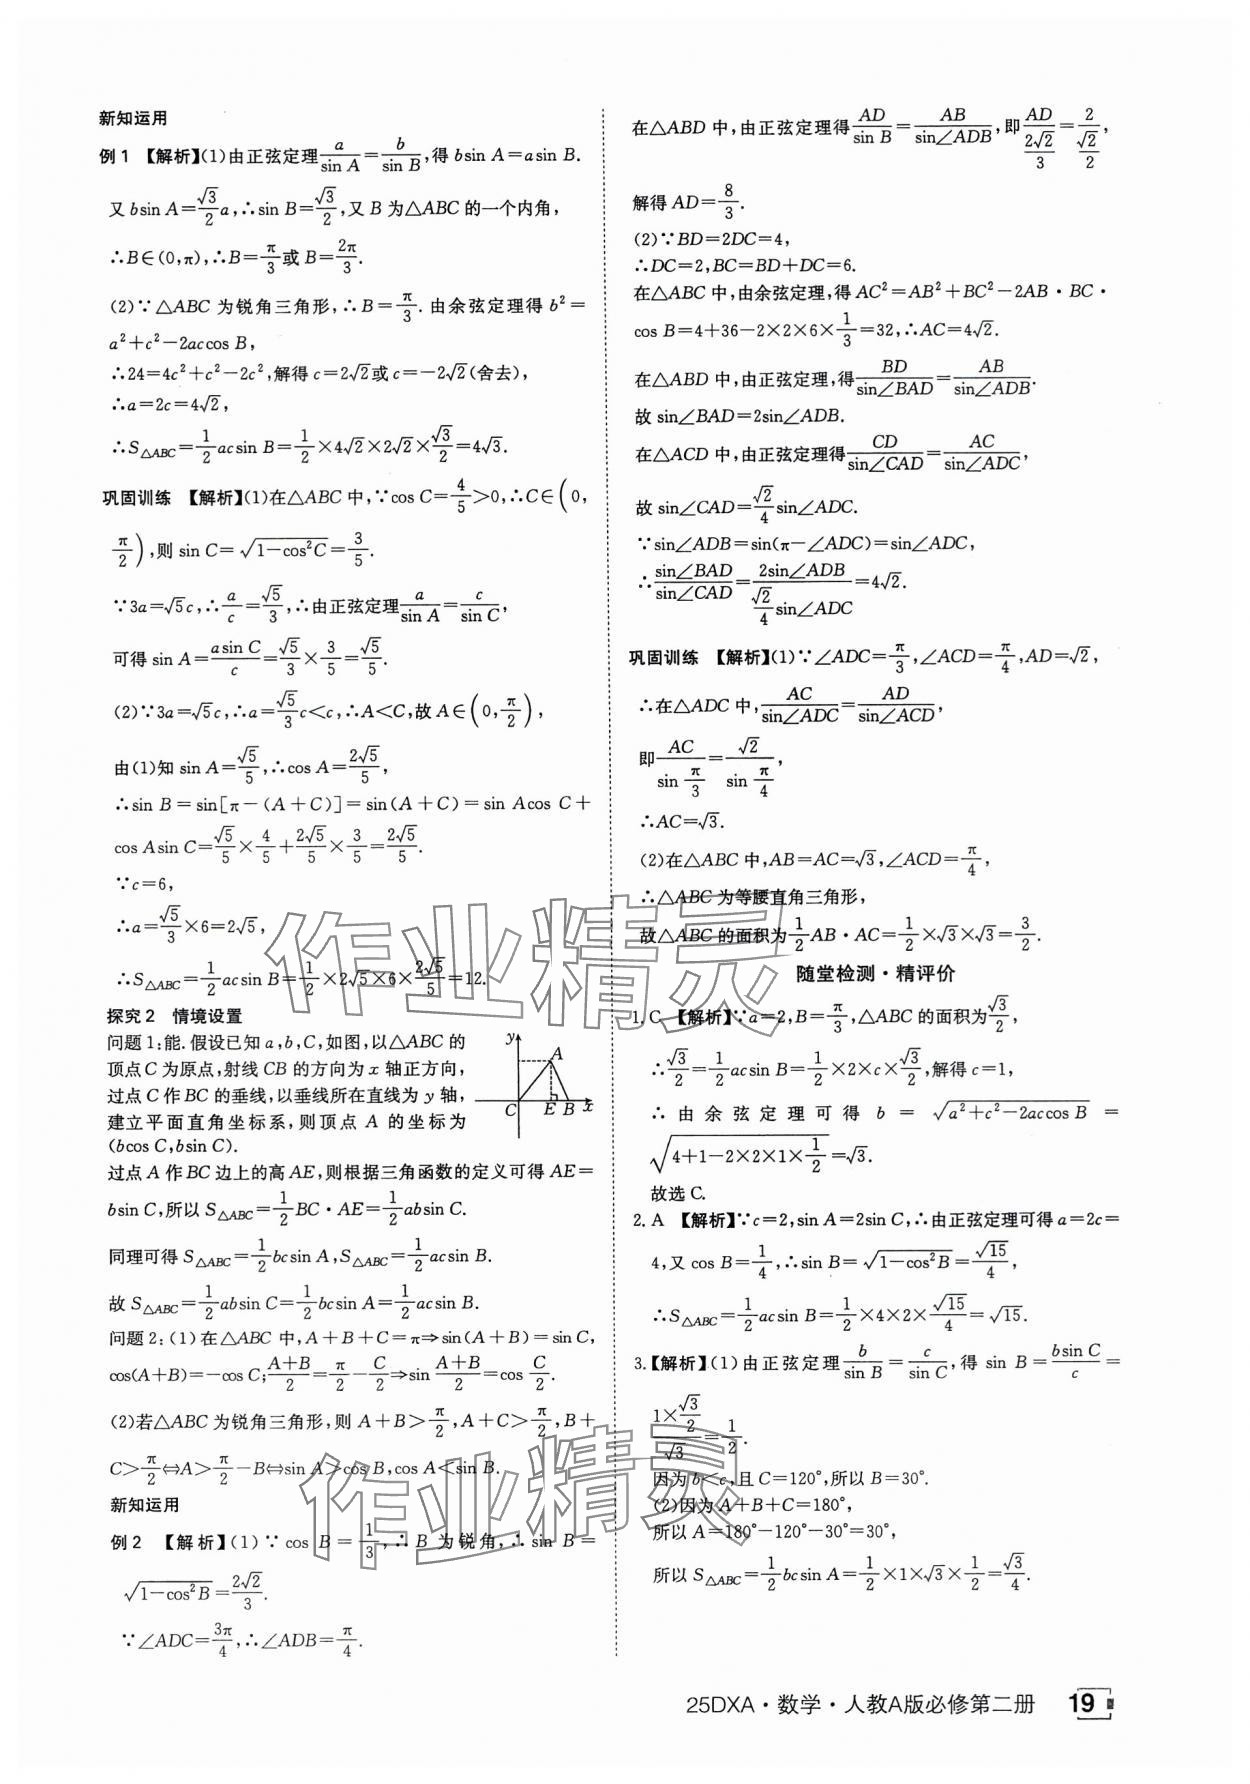 新知运用
例1 【解析】(1)由正弦定理$\frac{a}{\sin A}=\frac{b}{\sin B}$,得 bsin A=asin B.
又 bsin A=$\frac{\sqrt{3}}{2}$a,∴sin B=$\frac{\sqrt{3}}{2}$,又 B 为△ABC 的一个内角,
∴B∈(0,π),∴B=$\frac{π}{3}$或 B=$\frac{2π}{3}$.
(2)∵△ABC 为锐角三角形,∴B=$\frac{π}{3}$.由余弦定理得 b²=
a²+c²-2accos B,
∴24=4c²+c²-2c²,解得 c=2√2或 c=-2√2(舍去),
∴a=2c=4√2,
∴S△ABC=$\frac{1}{2}$acsin B=$\frac{1}{2}$×4√2×2√2×$\frac{\sqrt{3}}{2}$=4√3.
巩固训练 【解析】(1)在△ABC 中,∵cos C=$\frac{4}{5}$>0,∴C∈(0,
$\frac{π}{2}$),则 sin C=$\sqrt{1-\cos^2 C}$=$\frac{3}{5}$.
∵3a=√5c,∴$\frac{a}{c}$=$\frac{\sqrt{5}}{3}$,∴由正弦定理$\frac{a}{\sin A}=\frac{c}{\sin C}$,
可得 sin A=$\frac{a\sin C}{c}$=$\frac{\sqrt{5}}{3}$×$\frac{3}{5}$=$\frac{\sqrt{5}}{5}$.
(2)∵3a=√5c,∴a=$\frac{\sqrt{5}}{3}$c<c,∴A<C,故 A∈(0,$\frac{π}{2}$),
由(1)知 sin A=$\frac{\sqrt{5}}{5}$,∴cos A=$\frac{2\sqrt{5}}{5}$,
∴sin B=sin[π-(A+C)]=sin(A+C)=sin Acos C+
cos Asin C=$\frac{\sqrt{5}}{5}$×$\frac{4}{5}$+$\frac{2\sqrt{5}}{5}$×$\frac{3}{5}$=$\frac{2\sqrt{5}}{5}$.
∵c=6,
∴a=$\frac{\sqrt{5}}{3}$×6=2√5,
∴S△ABC=$\frac{1}{2}$acsin B=$\frac{1}{2}$×2√5×6×$\frac{2\sqrt{5}}{5}$=12.
探究2 情境设置
问题1:能.假设已知 a,b,C,如图,以△ABC 的
顶点C 为原点,射线 CB 的方向为 x 轴正方向,
过点 C 作 BC 的垂线,以垂线所在直线为 y 轴,
建立平面直角坐标系,则顶点 A 的坐标为
(bcos C,bsin C).
y A C E B x
过点 A 作 BC 边上的高 AE,则根据三角函数的定义可得 AE=
bsin C,所以 S△ABC=$\frac{1}{2}$BC·AE=$\frac{1}{2}$absin C.
同理可得 S△ABC=$\frac{1}{2}$bcsin A,S△ABC=$\frac{1}{2}$acsin B.
故 S△ABC=$\frac{1}{2}$absin C=$\frac{1}{2}$bcsin A=$\frac{1}{2}$acsin B.
问题2:(1)在△ABC 中,A+B+C=π⇒sin(A+B)=sin C,
cos(A+B)=-cos C;$\frac{A+B}{2}$=$\frac{π}{2}$-$\frac{C}{2}$⇒sin$\frac{A+B}{2}$=cos$\frac{C}{2}$.
(2)若△ABC 为锐角三角形,则 A+B>$\frac{π}{2}$,A+C>$\frac{π}{2}$,B+
C>$\frac{π}{2}$⇔A>$\frac{π}{2}$-B⇔sin A>cos B,cos A<sin B.
新知运用
例2 【解析】(1)∵cos B=$\frac{1}{3}$,∴B 为锐角,∴sin B=
$\sqrt{1-\cos^2 B}$=$\frac{2\sqrt{2}}{3}$.
∵∠ADC=$\frac{3π}{4}$,∴∠ADB=$\frac{π}{4}$.
在△ABD 中,由正弦定理得$\frac{AD}{\sin B}=\frac{AB}{\sin∠ADB}$,即$\frac{AD}{\frac{2\sqrt{2}}{3}}=\frac{2}{\frac{\sqrt{2}}{2}}$,
解得 AD=$\frac{8}{3}$.
(2)∵BD=2DC=4,
∴DC=2,BC=BD+DC=6.
在△ABC 中,由余弦定理,得 AC²=AB²+BC²-2AB·BC·
cos B=4+36-2×2×6×$\frac{1}{3}$=32,∴AC=4√2.
在△ABD 中,由正弦定理,得$\frac{BD}{\sin∠BAD}=\frac{AB}{\sin∠ADB}$.
故 sin∠BAD=2sin∠ADB.
在△ACD 中,由正弦定理得$\frac{CD}{\sin∠CAD}=\frac{AC}{\sin∠ADC}$,
故 sin∠CAD=$\frac{\sqrt{2}}{4}$sin∠ADC.
∵sin∠ADB=sin(π-∠ADC)=sin∠ADC,
∴$\frac{\sin∠BAD}{\sin∠CAD}=\frac{2\sin∠ADB}{\frac{\sqrt{2}}{4}\sin∠ADC}$=4√2.
巩固训练 【解析】(1)∵∠ADC=$\frac{π}{3}$,∠ACD=$\frac{π}{4}$,AD=√2,
∴在△ADC 中,$\frac{AC}{\sin∠ADC}=\frac{AD}{\sin∠ACD}$,
即$\frac{AC}{\sin\frac{π}{3}}=\frac{\sqrt{2}}{\sin\frac{π}{4}}$,
∴AC=√3.
(2)在△ABC 中,AB=AC=√3,∠ACD=$\frac{π}{4}$,
∴△ABC 为等腰直角三角形,
故△ABC 的面积为$\frac{1}{2}$AB·AC=$\frac{1}{2}$×√3×√3=$\frac{3}{2}$.
随堂检测·精评价
1. C 【解析】∵a=2,B=$\frac{π}{3}$,△ABC 的面积为$\frac{\sqrt{3}}{2}$,
∴$\frac{\sqrt{3}}{2}$=$\frac{1}{2}$acsin B=$\frac{1}{2}$×2×c×$\frac{\sqrt{3}}{2}$,解得 c=1,
∴由余弦定理可得 b=$\sqrt{a^2+c^2-2ac\cos B}$=
$\sqrt{4+1-2×2×1×\frac{1}{2}}$=√3.
故选 C.
2. A 【解析】∵c=2,sin A=2sin C,∴由正弦定理可得 a=2c=
4,又 cos B=$\frac{1}{4}$,∴sin B=$\sqrt{1-\cos^2 B}$=$\frac{\sqrt{15}}{4}$,
∴S△ABC=$\frac{1}{2}$acsin B=$\frac{1}{2}$×4×2×$\frac{\sqrt{15}}{4}$=√15.
3.【解析】(1)由正弦定理$\frac{b}{\sin B}=\frac{c}{\sin C}$,得 sin B=$\frac{b\sin C}{c}$=
$\frac{1×\frac{\sqrt{3}}{2}}{\sqrt{3}}$=$\frac{1}{2}$.
因为 b<c,且 C=120°,所以 B=30°.
(2)因为 A+B+C=180°,
所以 A=180°-120°-30°=30°,
所以 S△ABC=$\frac{1}{2}$bcsin A=$\frac{1}{2}$×1×√3×$\frac{1}{2}$=$\frac{\sqrt{3}}{4}$.
作业精灵
作业精灵
25DXA·数学·人教A版必修第二册 19